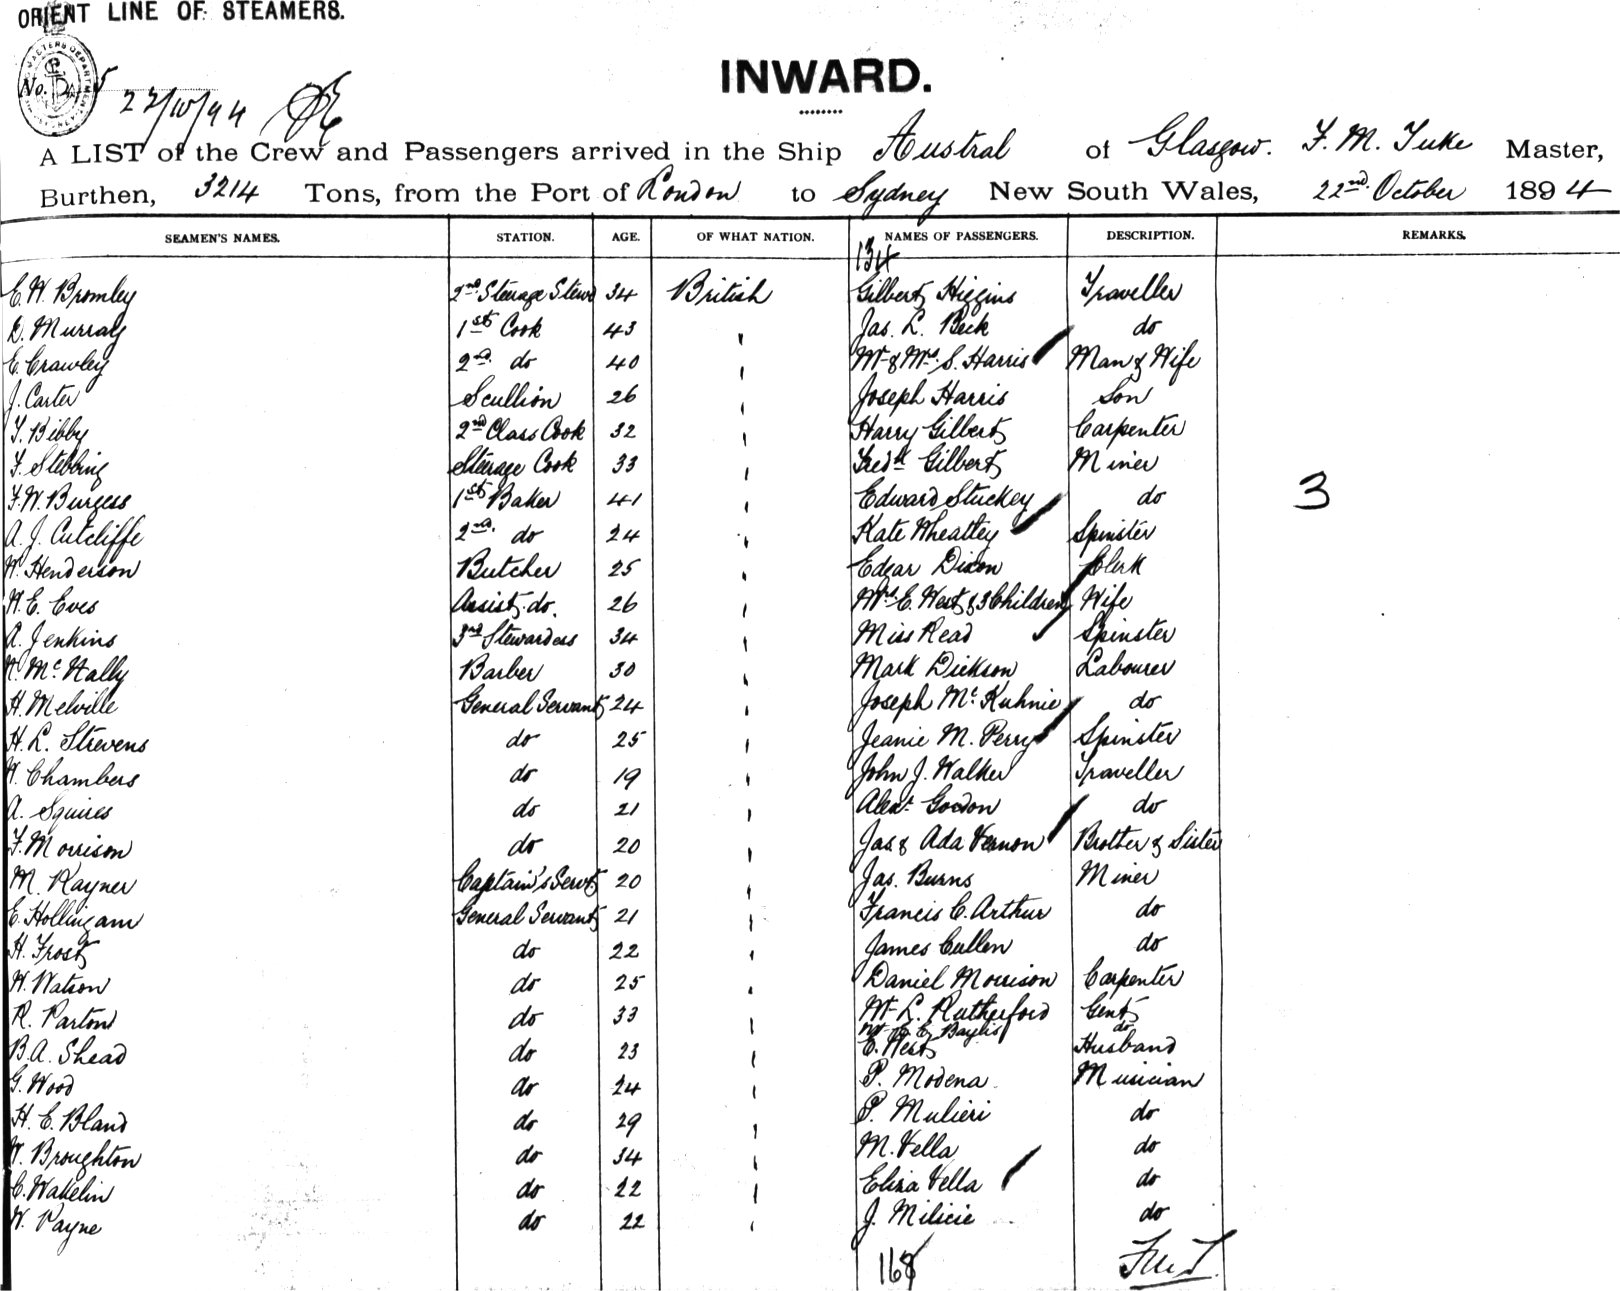 ORIENT LINE OF STEAMERS.
No.
22/10/94
INWARD.
A LIST of the Crew and Passengers arrived in the Ship Austral of Glasgow. F. M. Tuke Master,
Burthen, 3214 Tons, from the Port of London to Sydney New South Wales, 22nd October 1894
SEAMEN'S NAMES. STATION. AGE. OF WHAT NATION. NAMES OF PASSENGERS. DESCRIPTION. REMARKS.
134
E. W. Bromley 2nd Steerage Stewd 34 British Gilbert Higgins Traveller
D. Murray 1st Cook 43 " Jas. L. Beck do
E. Crawley 2nd do 40 " Mr & Mrs. S. Harris Man & Wife
J. Carter Scullion 26 " Joseph Harris Son
T. Bibby 2nd Class Cook 32 " Harry Gilbert Carpenter
F. Stebbing Steerage Cook 33 " Fredk Gilbert Miner
F. W. Burgess 1st Baker 41 " Edward Stuckey do 3
A. J. Cutcliffe 2nd. do 24 " Kate Wheatley Spinster
W. Henderson Butcher 25 " Edgar Dixon Clerk
W. E. Eves Assist. do. 26 " Mrs. E. West & 3 Children Wife
A. Jenkins 3rd Stewardess 34 " Miss Read Spinster
McNally Barber 30 " Mark Dickson Labourer
H. Melville General Servant 24 " Joseph McKuhnie do
H. L. Strevens do 25 " Jeanie M. Perry Spinster
W. Chambers do 19 " John J. Walker Traveller
A. Squires do 21 " Alexr. Gordon do
F. Morrison do 20 " Jas & Ada Vernon Brother & Sister
M. Rayner Captain's Servt 20 " Jas. Burns Miner
E. Hollingam General Servant 21 " Francis C. Arthur do
H. Frost do 22 " James Cullen do
W. Watson do 25 " Daniel Morrison Carpenter
R. Parton do 33 " Mr L. Rutherford Gent
Mr E. E. Baylis do
B. A. Shead do 23 " E. West Husband
G. Wood do 24 " P. Modena Musician
H. E. Bland do 29 " P. Mulieri do
W. Broughton do 34 " M. Vella do
C. Wakelin do 22 " Eliza Vella do
W. Payne do 22 " J. Milicie do
168
F.M.T.